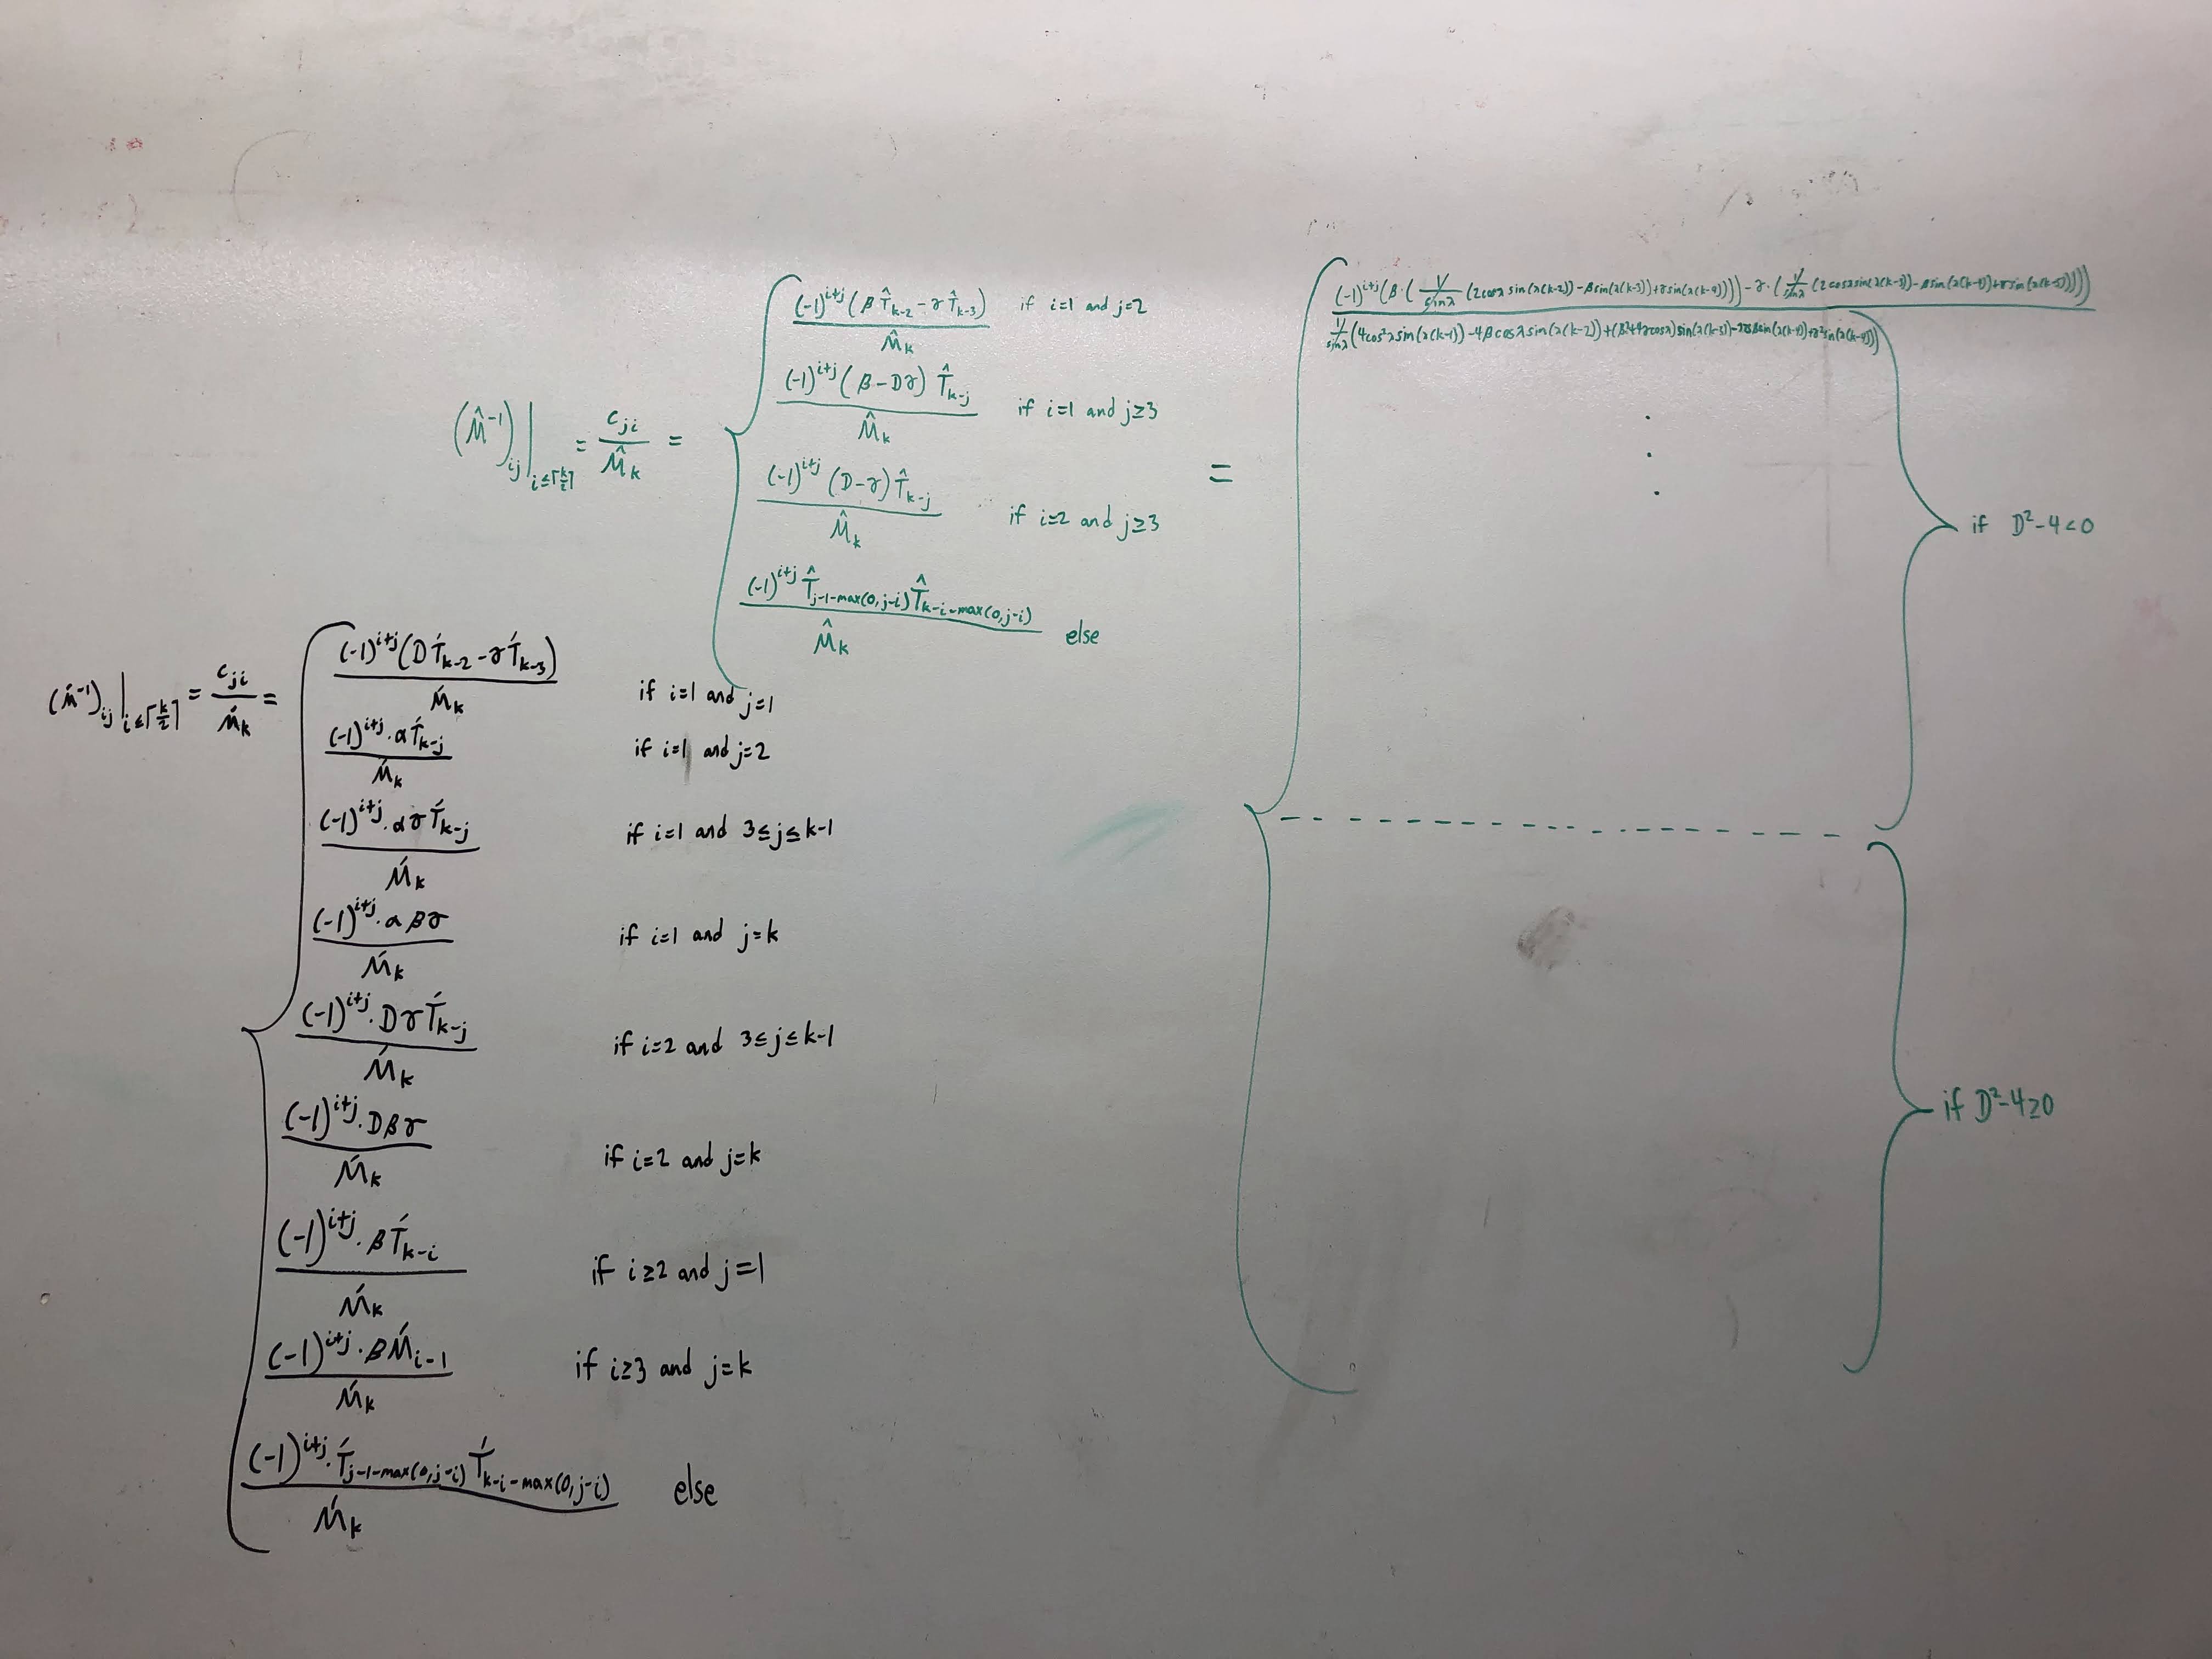 (M̂⁻¹)ᵢⱼ|_{i≤⌈k/2⌉} = c_{ji}/M̂_k =
(-1)^{i+j}(βT̂_{k-2} - γT̂_{k-3}) / M̂_k if i=1 and j=2
(-1)^{i+j}(β-Dγ) T̂_{k-j} / M̂_k if i=1 and j≥3
(-1)^{i+j}(D-γ)T̂_{k-j} / M̂_k if i=2 and j≥3
(-1)^{i+j} T̂_{j-1-max(0,j-i)} T̂_{k-i-max(0,j-i)} / M̂_k else
=
(-1)^{i+j}(β·(1/sinλ (2cosλ sin(λ(k-2))-βsin(λ(k-3))+γsin(λ(k-4))))-γ·(1/sinλ (2cosλsin(λ(k-3))-βsin(λ(k-4))+γsin(λ(k-5)))))
1/sinλ (4cos²λsin(λ(k-1))-4βcosλsin(λ(k-2))+(β²+4γcosλ)sin(λ(k-3))-2γβsin(λ(k-4))+γ²sin(λ(k-5)))
if D²-4<0
if D²-4≥0
(Ḿ⁻¹)ᵢⱼ|_{i≤⌈k/2⌉} = c_{ji}/Ḿ_k =
(-1)^{i+j}(DT́_{k-2}-γT́_{k-3}) / Ḿ_k if i=1 and j=1
(-1)^{i+j}·αT́_{k-j} / Ḿ_k if i=1 and j=2
(-1)^{i+j}·αγT́_{k-j} / Ḿ_k if i=1 and 3≤j≤k-1
(-1)^{i+j}·αβγ / Ḿ_k if i=1 and j=k
(-1)^{i+j}·DγT́_{k-j} / Ḿ_k if i=2 and 3≤j≤k-1
(-1)^{i+j}·Dβγ / Ḿ_k if i=2 and j=k
(-1)^{i+j}·βT́_{k-i} / Ḿ_k if i≥2 and j=1
(-1)^{i+j}·βḾ_{i-1} / Ḿ_k if i≥3 and j=k
(-1)^{i+j}·T́_{j-1-max(0,j-i)} T́_{k-i-max(0,j-i)} / Ḿ_k else